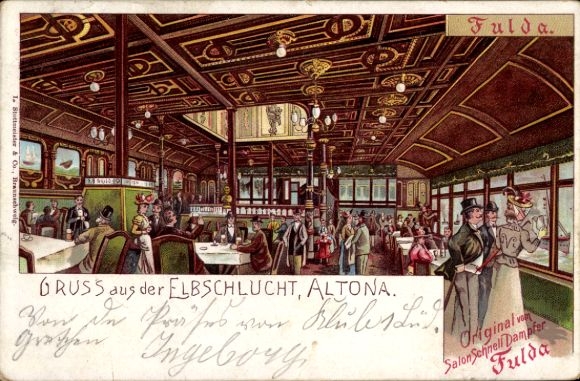 Fulda.
L. Stottmeister & Co., Braunschweig.
GRUSS aus der ELBSCHLUCHT, ALTONA.
Original vom
Salon Schnell Dampfer
Fulda
Von de Präses von Klub
Grethen Ingeborg.